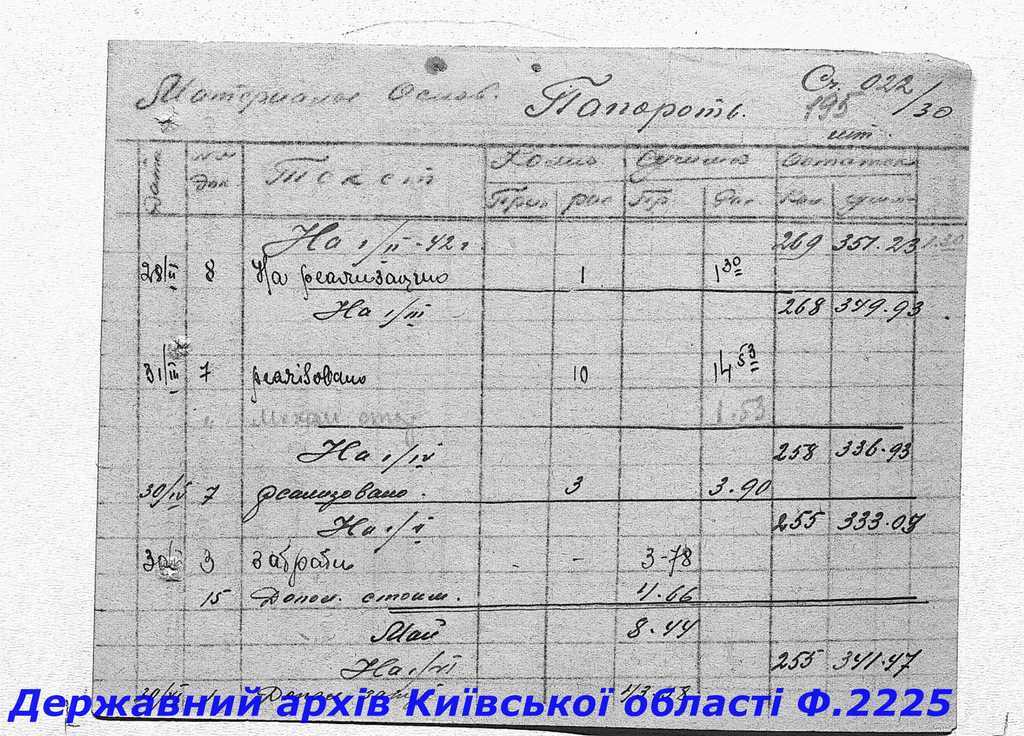 Материалов Основ. Папороть. Сч. 022/30
195
шт.
Дата №№ док Текст Колич Сумма Остаток
Прих рас Пр. Рас. Кол. сумма
На 1/II-42 г 269 351.23 1.30
28/II 8 На реализацию 1 1 30
На 1/III 268 349.93
31/III 7 реалізовано 10 14 53
" 1.53
На 1/IV 258 336.93
30/IV 7 реализовано. 3 3.90
На 1/V 255 333.03
3 - 3-78
15 Допол. стоим. 4.66
Май 8.44
На 1/VI 255 341.47
Державний архів Київської області Ф.2225